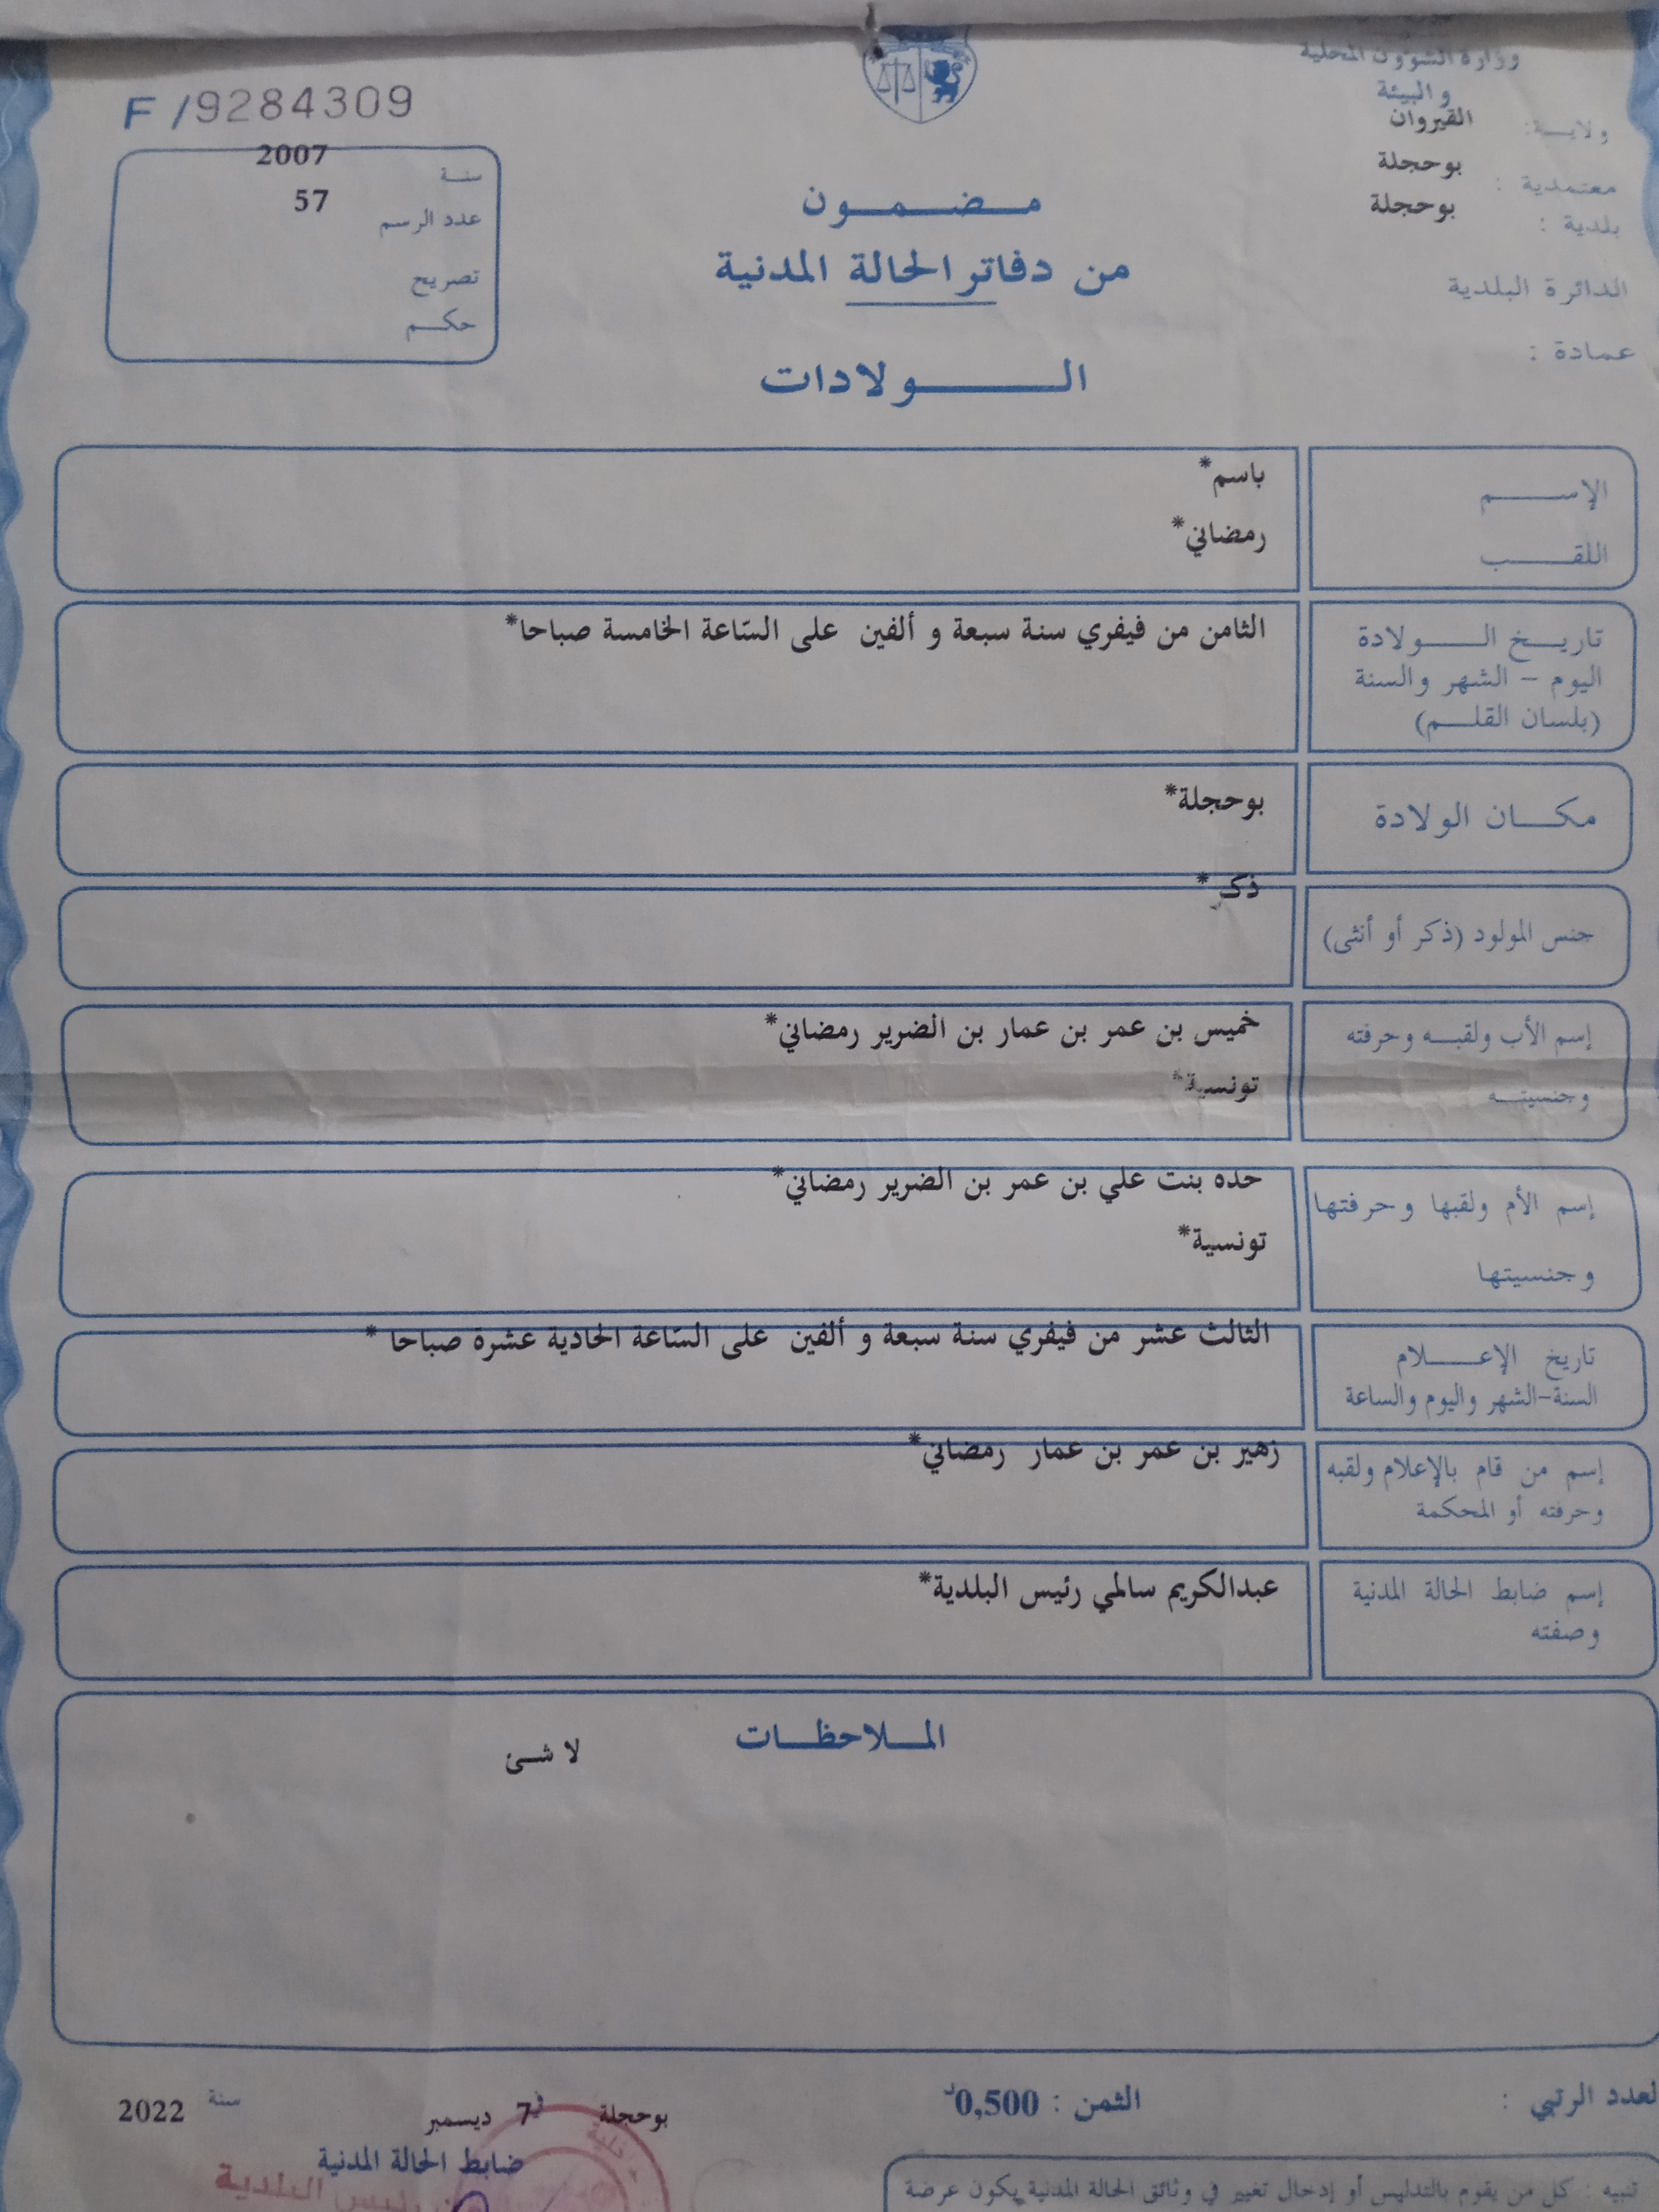 وزارة الشؤون المحلية
و البيئة
ولايـــة: القيروان
معتمدية : بوحجلة
بلدية : بوحجلة
الدائرة البلدية
عمادة :
F /9284309
سنة 2007
عدد الرسم 57
تصريح
حكم
مضمون
من دفاتر الحالة المدنية
الولادات
الإسم باسم*
اللقب رمضاني*
تاريخ الولادة الثامن من فيفري سنة سبعة و ألفين على السّاعة الخامسة صباحا*
اليوم – الشهر والسنة
(بلسان القلم)
مكان الولادة بوحجلة*
جنس المولود (ذكر أو أنثى) ذكر*
إسم الأب ولقبه وحرفته خميس بن عمر بن عمار بن الضرير رمضاني*
وجنسيته تونسية*
إسم الأم ولقبها وحرفتها حده بنت علي بن عمر بن الضرير رمضاني*
وجنسيتها تونسية*
تاريخ الإعلام الثالث عشر من فيفري سنة سبعة و ألفين على السّاعة الحادية عشرة صباحا *
السنة-الشهر واليوم والساعة
إسم من قام بالإعلام ولقبه زهير بن عمر بن عمار رمضاني*
وحرفته أو المحكمة
إسم ضابط الحالة المدنية عبدالكريم سالمي رئيس البلدية*
وصفته
الملاحظات
لا شئ
لعدد الرتبي :
الثمن : 0,500د
بوحجلة في 7 ديسمبر سنة 2022
ضابط الحالة المدنية
رئيس البلدية
تنبيه : كل من يقوم بالتدليس أو إدخال تغيير في وثائق الحالة المدنية يكون عرضة